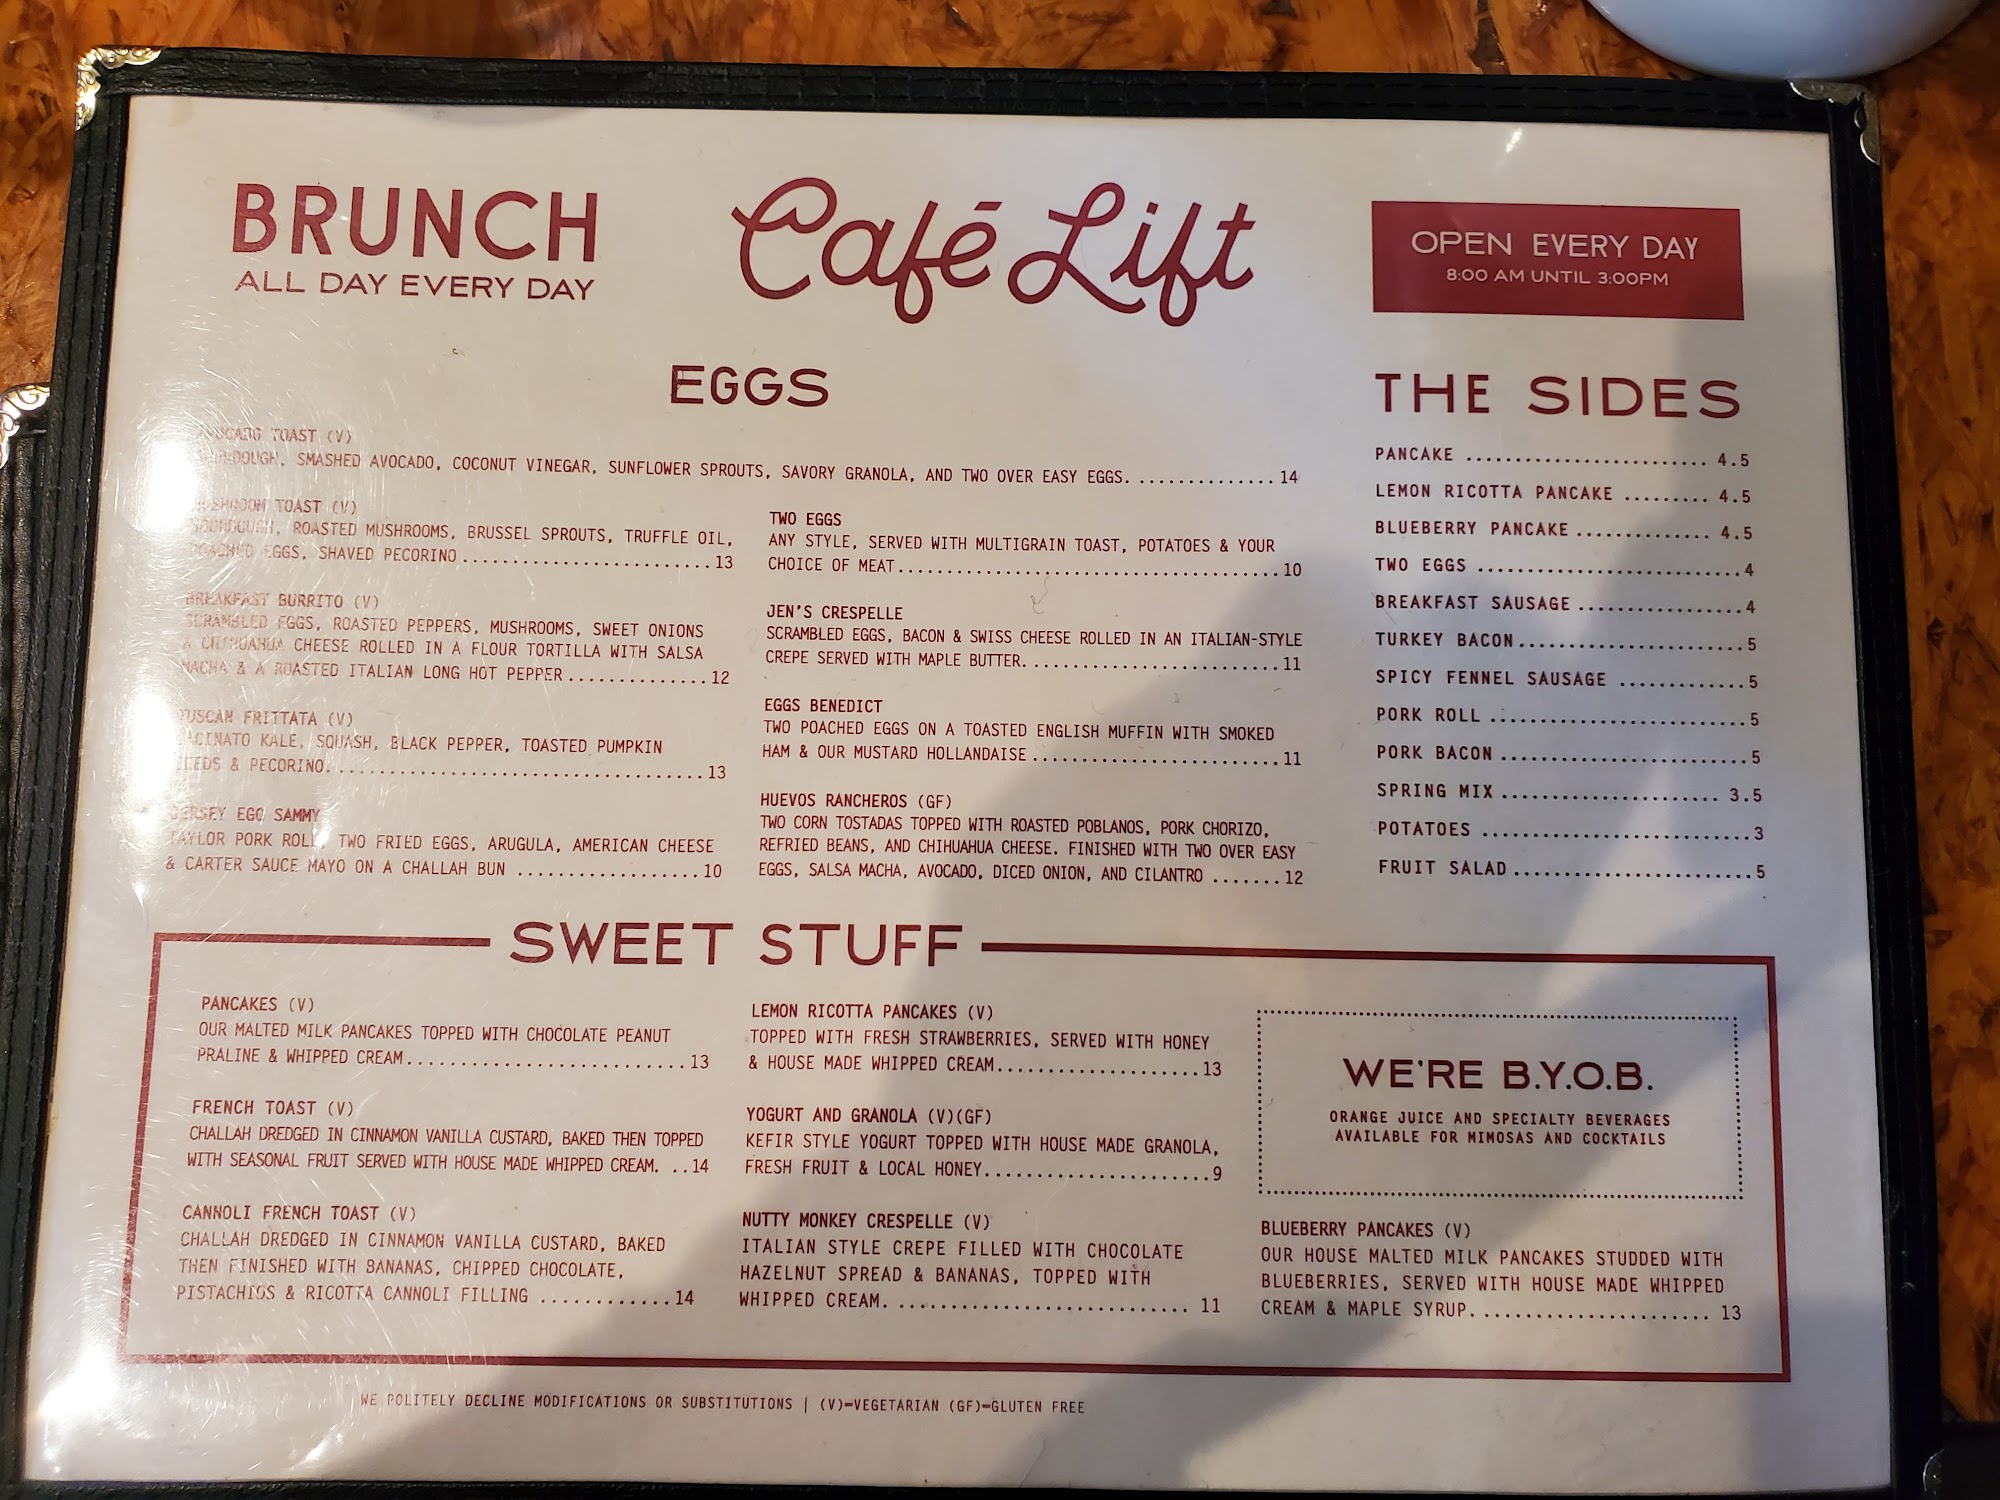 BRUNCH
ALL DAY EVERY DAY
Café Lift
OPEN EVERY DAY
8:00 AM UNTIL 3:00PM
EGGS
AVOCADO TOAST (V)
SOURDOUGH, SMASHED AVOCADO, COCONUT VINEGAR, SUNFLOWER SPROUTS, SAVORY GRANOLA, AND TWO OVER EASY EGGS. .............. 14
MUSHROOM TOAST (V)
SOURDOUGH, ROASTED MUSHROOMS, BRUSSEL SPROUTS, TRUFFLE OIL,
POACHED EGGS, SHAVED PECORINO ......................... 13
BREAKFAST BURRITO (V)
SCRAMBLED EGGS, ROASTED PEPPERS, MUSHROOMS, SWEET ONIONS
& CHIHUAHUA CHEESE ROLLED IN A FLOUR TORTILLA WITH SALSA
MACHA & A ROASTED ITALIAN LONG HOT PEPPER .............. 12
TUSCAN FRITTATA (V)
LACINATO KALE, SQUASH, BLACK PEPPER, TOASTED PUMPKIN
SEEDS & PECORINO. ..................................... 13
JERSEY EGG SAMMY
TAYLOR PORK ROLL, TWO FRIED EGGS, ARUGULA, AMERICAN CHEESE
& CARTER SAUCE MAYO ON A CHALLAH BUN .................. 10
TWO EGGS
ANY STYLE, SERVED WITH MULTIGRAIN TOAST, POTATOES & YOUR
CHOICE OF MEAT....................................... 10
JEN'S CRESPELLE
SCRAMBLED EGGS, BACON & SWISS CHEESE ROLLED IN AN ITALIAN-STYLE
CREPE SERVED WITH MAPLE BUTTER. ......................... 11
EGGS BENEDICT
TWO POACHED EGGS ON A TOASTED ENGLISH MUFFIN WITH SMOKED
HAM & OUR MUSTARD HOLLANDAISE ......................... 11
HUEVOS RANCHEROS (GF)
TWO CORN TOSTADAS TOPPED WITH ROASTED POBLANOS, PORK CHORIZO,
REFRIED BEANS, AND CHIHUAHUA CHEESE. FINISHED WITH TWO OVER EASY
EGGS, SALSA MACHA, AVOCADO, DICED ONION, AND CILANTRO ....... 12
THE SIDES
PANCAKE ........................ 4.5
LEMON RICOTTA PANCAKE ......... 4.5
BLUEBERRY PANCAKE .............. 4.5
TWO EGGS ........................... 4
BREAKFAST SAUSAGE ................. 4
TURKEY BACON ....................... 5
SPICY FENNEL SAUSAGE ............. 5
PORK ROLL .......................... 5
PORK BACON ......................... 5
SPRING MIX ...................... 3.5
POTATOES ........................... 3
FRUIT SALAD ........................ 5
SWEET STUFF
PANCAKES (V)
OUR MALTED MILK PANCAKES TOPPED WITH CHOCOLATE PEANUT
PRALINE & WHIPPED CREAM............................ 13
FRENCH TOAST (V)
CHALLAH DREDGED IN CINNAMON VANILLA CUSTARD, BAKED THEN TOPPED
WITH SEASONAL FRUIT SERVED WITH HOUSE MADE WHIPPED CREAM. .. 14
CANNOLI FRENCH TOAST (V)
CHALLAH DREDGED IN CINNAMON VANILLA CUSTARD, BAKED
THEN FINISHED WITH BANANAS, CHIPPED CHOCOLATE,
PISTACHIOS & RICOTTA CANNOLI FILLING ............. 14
LEMON RICOTTA PANCAKES (V)
TOPPED WITH FRESH STRAWBERRIES, SERVED WITH HONEY
& HOUSE MADE WHIPPED CREAM.................... 13
YOGURT AND GRANOLA (V)(GF)
KEFIR STYLE YOGURT TOPPED WITH HOUSE MADE GRANOLA,
FRESH FRUIT & LOCAL HONEY....................... 9
NUTTY MONKEY CRESPELLE (V)
ITALIAN STYLE CREPE FILLED WITH CHOCOLATE
HAZELNUT SPREAD & BANANAS, TOPPED WITH
WHIPPED CREAM. ............................. 11
WE'RE B.Y.O.B.
ORANGE JUICE AND SPECIALTY BEVERAGES
AVAILABLE FOR MIMOSAS AND COCKTAILS
BLUEBERRY PANCAKES (V)
OUR HOUSE MALTED MILK PANCAKES STUDDED WITH
BLUEBERRIES, SERVED WITH HOUSE MADE WHIPPED
CREAM & MAPLE SYRUP. ....................... 13
WE POLITELY DECLINE MODIFICATIONS OR SUBSTITUTIONS | (V)=VEGETARIAN (GF)=GLUTEN FREE